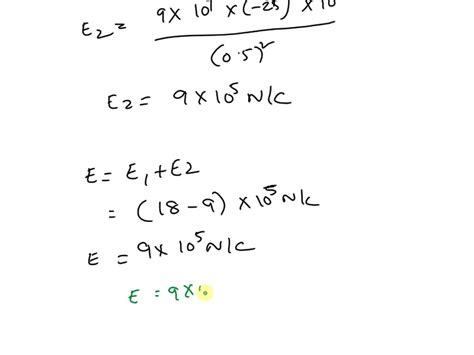 E₂ = 9 × 10⁹ × (-25) × 10
(0.5)²
E₂ = 9 × 10⁵ N/C
E = E₁ + E₂
= (18 - 9) × 10⁵ N/C
E = 9 × 10⁵ N/C
E = 9 ×